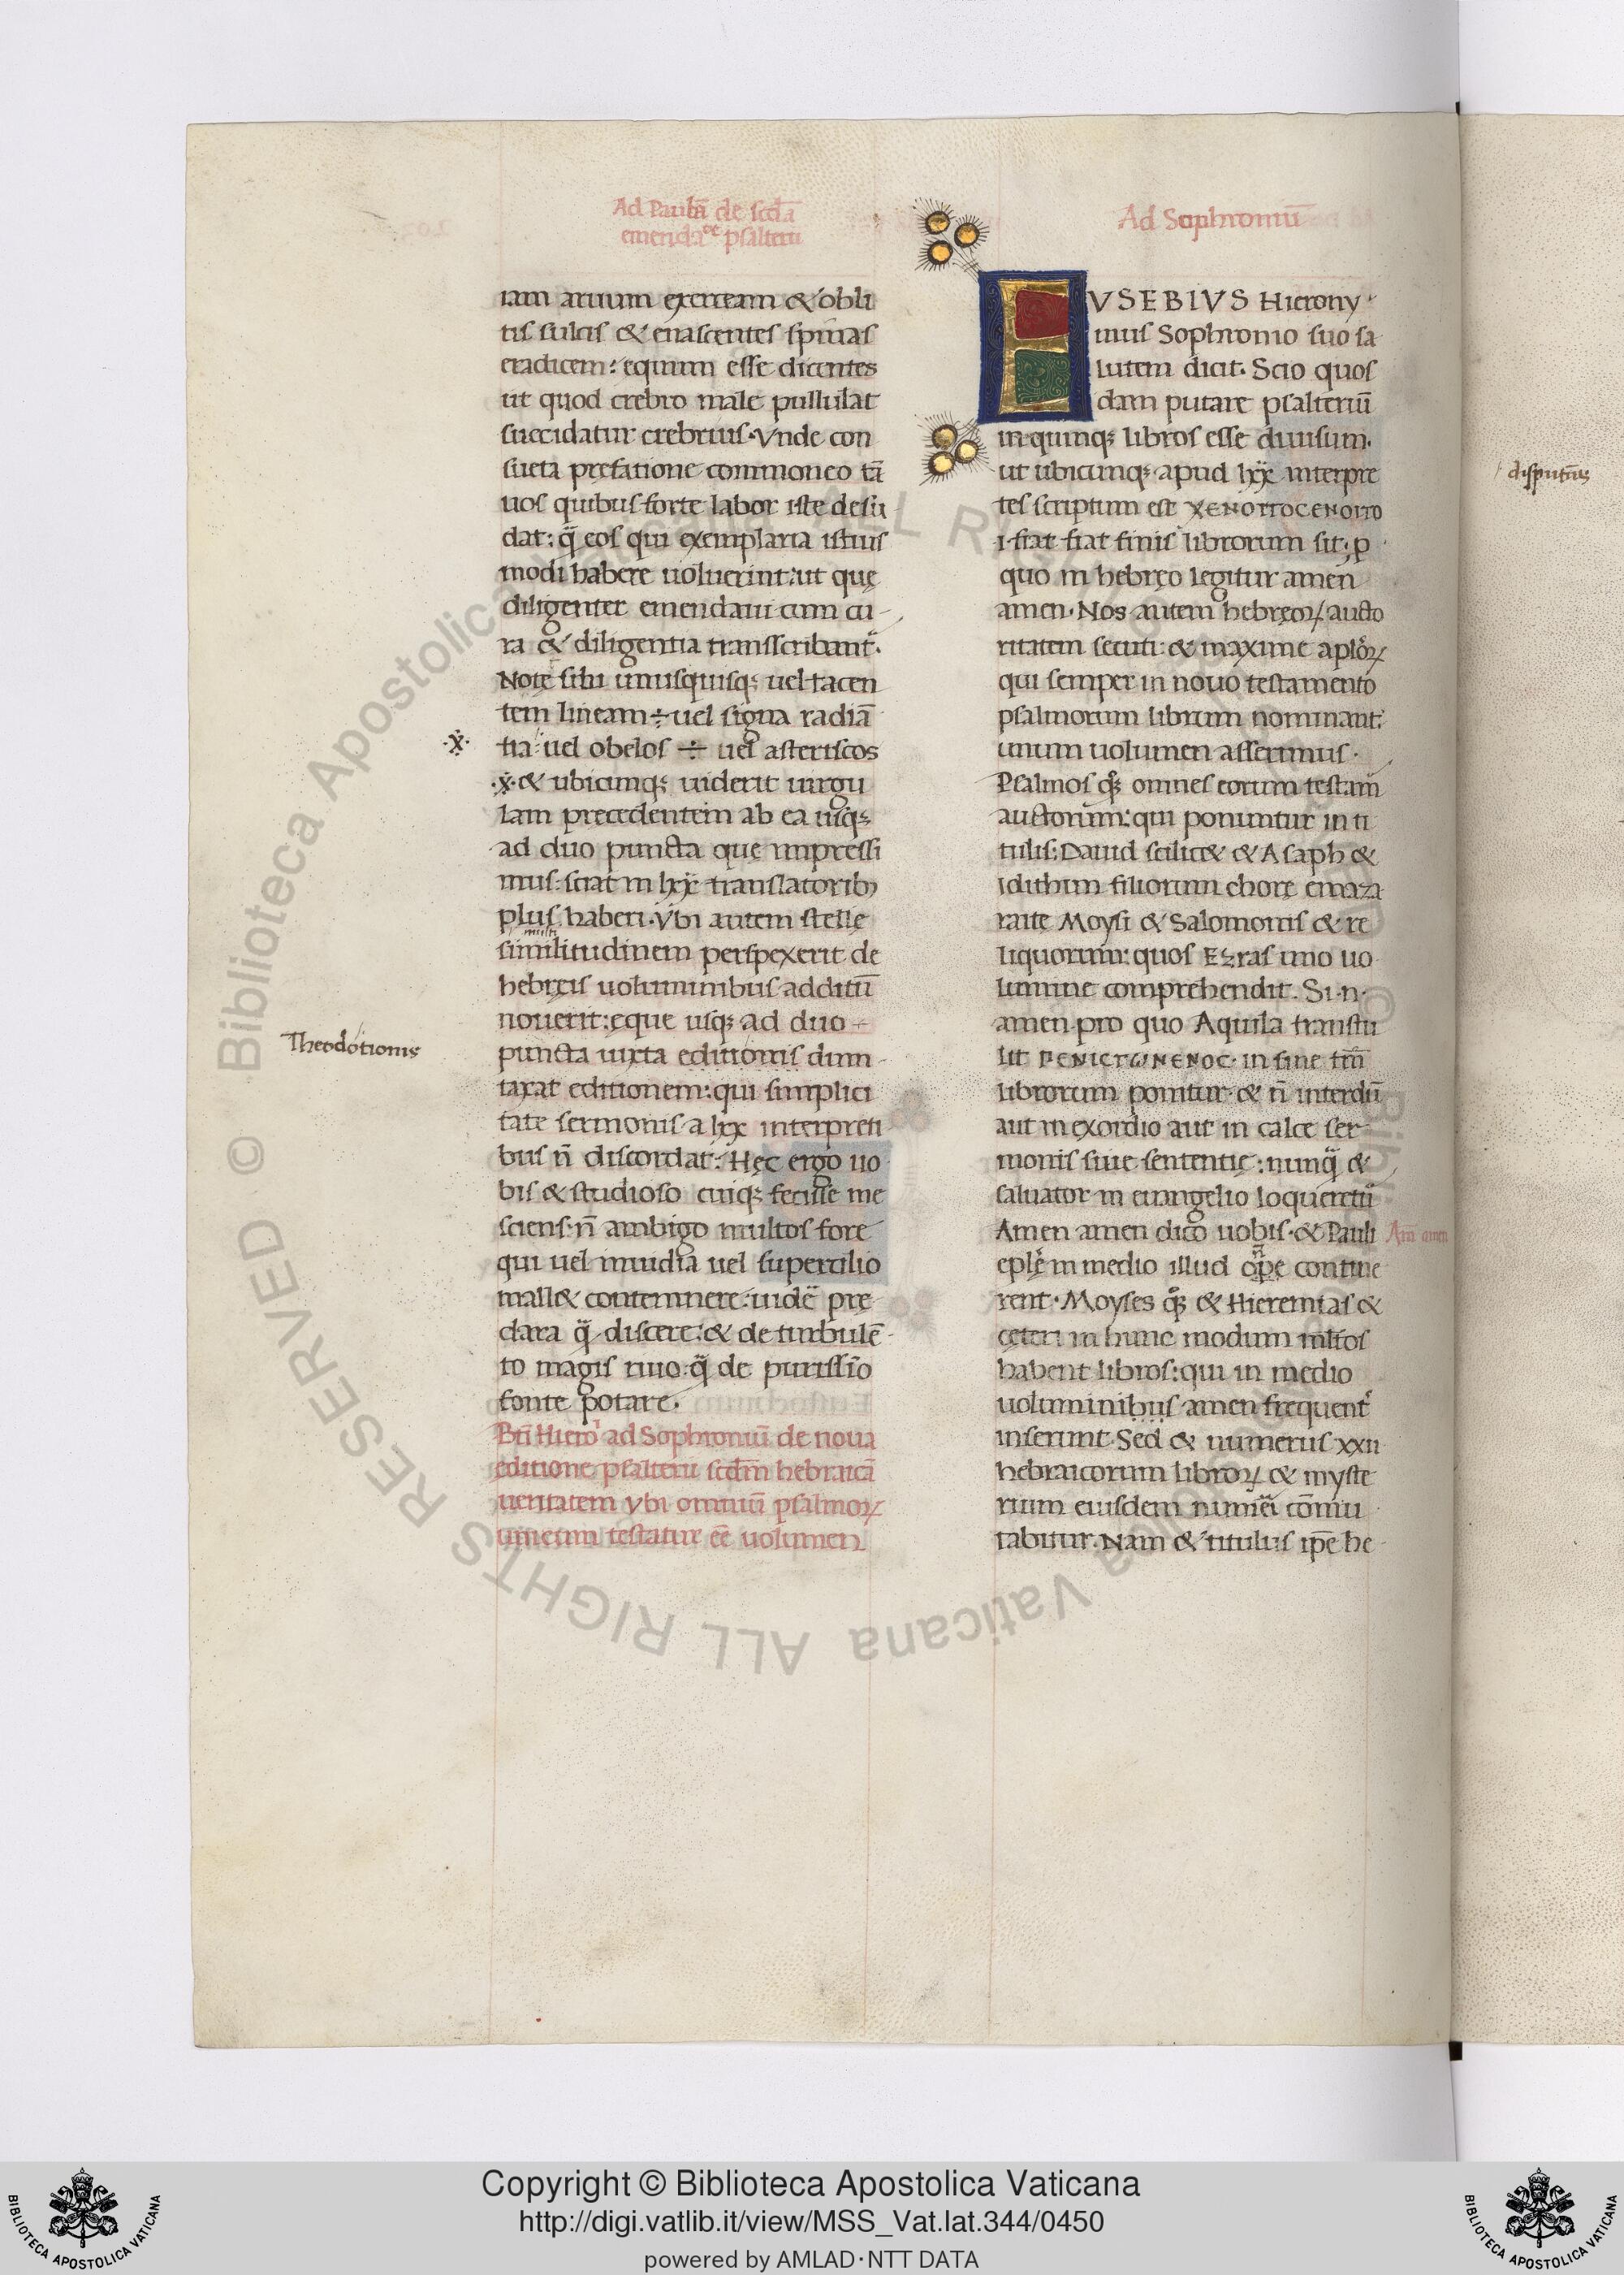 Ad Paulā de scdā
emendaōe psalterii
iam aruum exerceam & obli
tis sulcis & enascentes spinas
eradicem: equum esse dicentes
ut quod crebro male pullulat
succidatur crebrius. Vnde con
sueta prefatione commoneo tā
uos quibus forte labor iste desu
dat: q̃ eos qui exemplaria istius
modi habere uoluerint: ut quę
diligenter emendaui cum cu
ra & diligentia transscribant̃.
Notę sibi unusquisq; uel iacen
tem lineam ÷ uel signa radiā
tia: uel obelos ÷ uel asteriscos
·ẋ̣· & ubicunq; uiderit uirgu
lam precedentem ab ea usq;
ad duo puncta quę impressi
mus: sciat in lxx translatorib;
plus haberi. Vbi autem stellę
similitudinem perspexerit de
hebręis uoluminibus additū
nouerit: ęque usq; ad duo
puncta iuxta editionis dun
taxat editionem: qui simplici
tate sermonis a lxx interpreti
bus n̄ discordat. Hęc ergo uo
bis & studioso cuiq; fecisse me
sciens: n̄ ambigo multos fore
qui uel inuidia uel supercilio
mall& contemnere: uidẽ pre
clara q̃ discere: & de turbulē
to magis riuo: q̃ de purissīo
fonte potare.
Bt̄i Hiero ad Sophroniū de noua
editione psalterii scdm̄ hebraicā
ueritatem Vbi omniū psalmoꝝ
unicum testatur eē uolumen
·ẋ̣·
Theodotionis
Ad Sophroniū
EVSEBIVS Hierony
mus Sophronio suo sa
lutem dicit. Scio quos
dam putare psalteriū
in quinq; libros esse diuisum.
ut ubicunq; apud lxx interpre
tes scriptum est ΧΕΝΟΙΤΟCΕΝΟΙΤΟ
i. fiat fiat finis librorum sit: p
quo in hebręo legitur amen
amen. Nos autem hebręoꝝ aucto
ritatem secuti: & maxime aploꝝ
qui semper in nouo testamento
psalmorum librum nominant:
unum uolumen asserimus.
Psalmos q̃; omnes eorum testam̃
auctorum: qui ponuntur in ti
tulis: Dauid scilic& & Asaph &
idithun filiorum chorę emaza
raitę Moysi & Salomonis & re
liquorum: quos Ezras uno uo
lumine comprehendit. Si .n.
amen pro quo Aquila transtu
lit ΡΕΝΙCΤωΝΕΝΟC. in fine tm̄
librorum ponitur. & n̄ interdū
aut in exordio aut in calce ser
monis siue sententię: nunq̃ &
saluator in euangelio loqueret̃
Amen amen dico uobis. & Pauli
eplę in medio illud ope contine
rent. Moyses q̃; & Hieremias &
cęteri in hunc modum mltos
habent libros: qui in medio
uoluminibus amen frequent̃
inserunt. Sed & numerus xxii
hebraicorum libroꝝ & myste
rium eiusdem numeri cōmu
tabitur. Nam & titulus ip̄e he
Am̄ amen
disputās
Copyright © Biblioteca Apostolica Vaticana
http://digi.vatlib.it/view/MSS_Vat.lat.344/0450
powered by AMLAD·NTT DATA
BIBLIOTECA APOSTOLICA VATICANA
BIBLIOTECA APOSTOLICA VATICANA
© Biblioteca Apostolica Vaticana ALL RIGHTS RESERVED